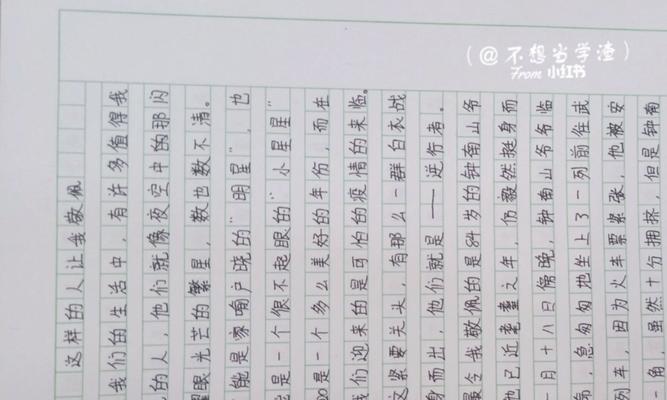 (@不想当学渣)
From 小红书
这样的人让我敬佩
我们的生活中，有许多值得我
的人，他们就像夜空中的那闪
耀眼光芒的繁星，数也数不清。
能是家喻户晓的“明星”，也
是一个很不起眼的“小星星”
20是一个多么美好的年份，而在
我们迎来的是可怕的疫情的来临。
这紧要关头，有那么一群白衣战
身而出，他们就是——逆行者。
最令我敬佩的是84岁的钟南山爷
他已近耄耋之年，仍毅然挺身而
一月十八日傍晚，钟南山爷爷临
急匆匆地坐上了一列前往武
列车，因为火车票紧张，他被安
一角，虽然十分拥挤，但是钟南